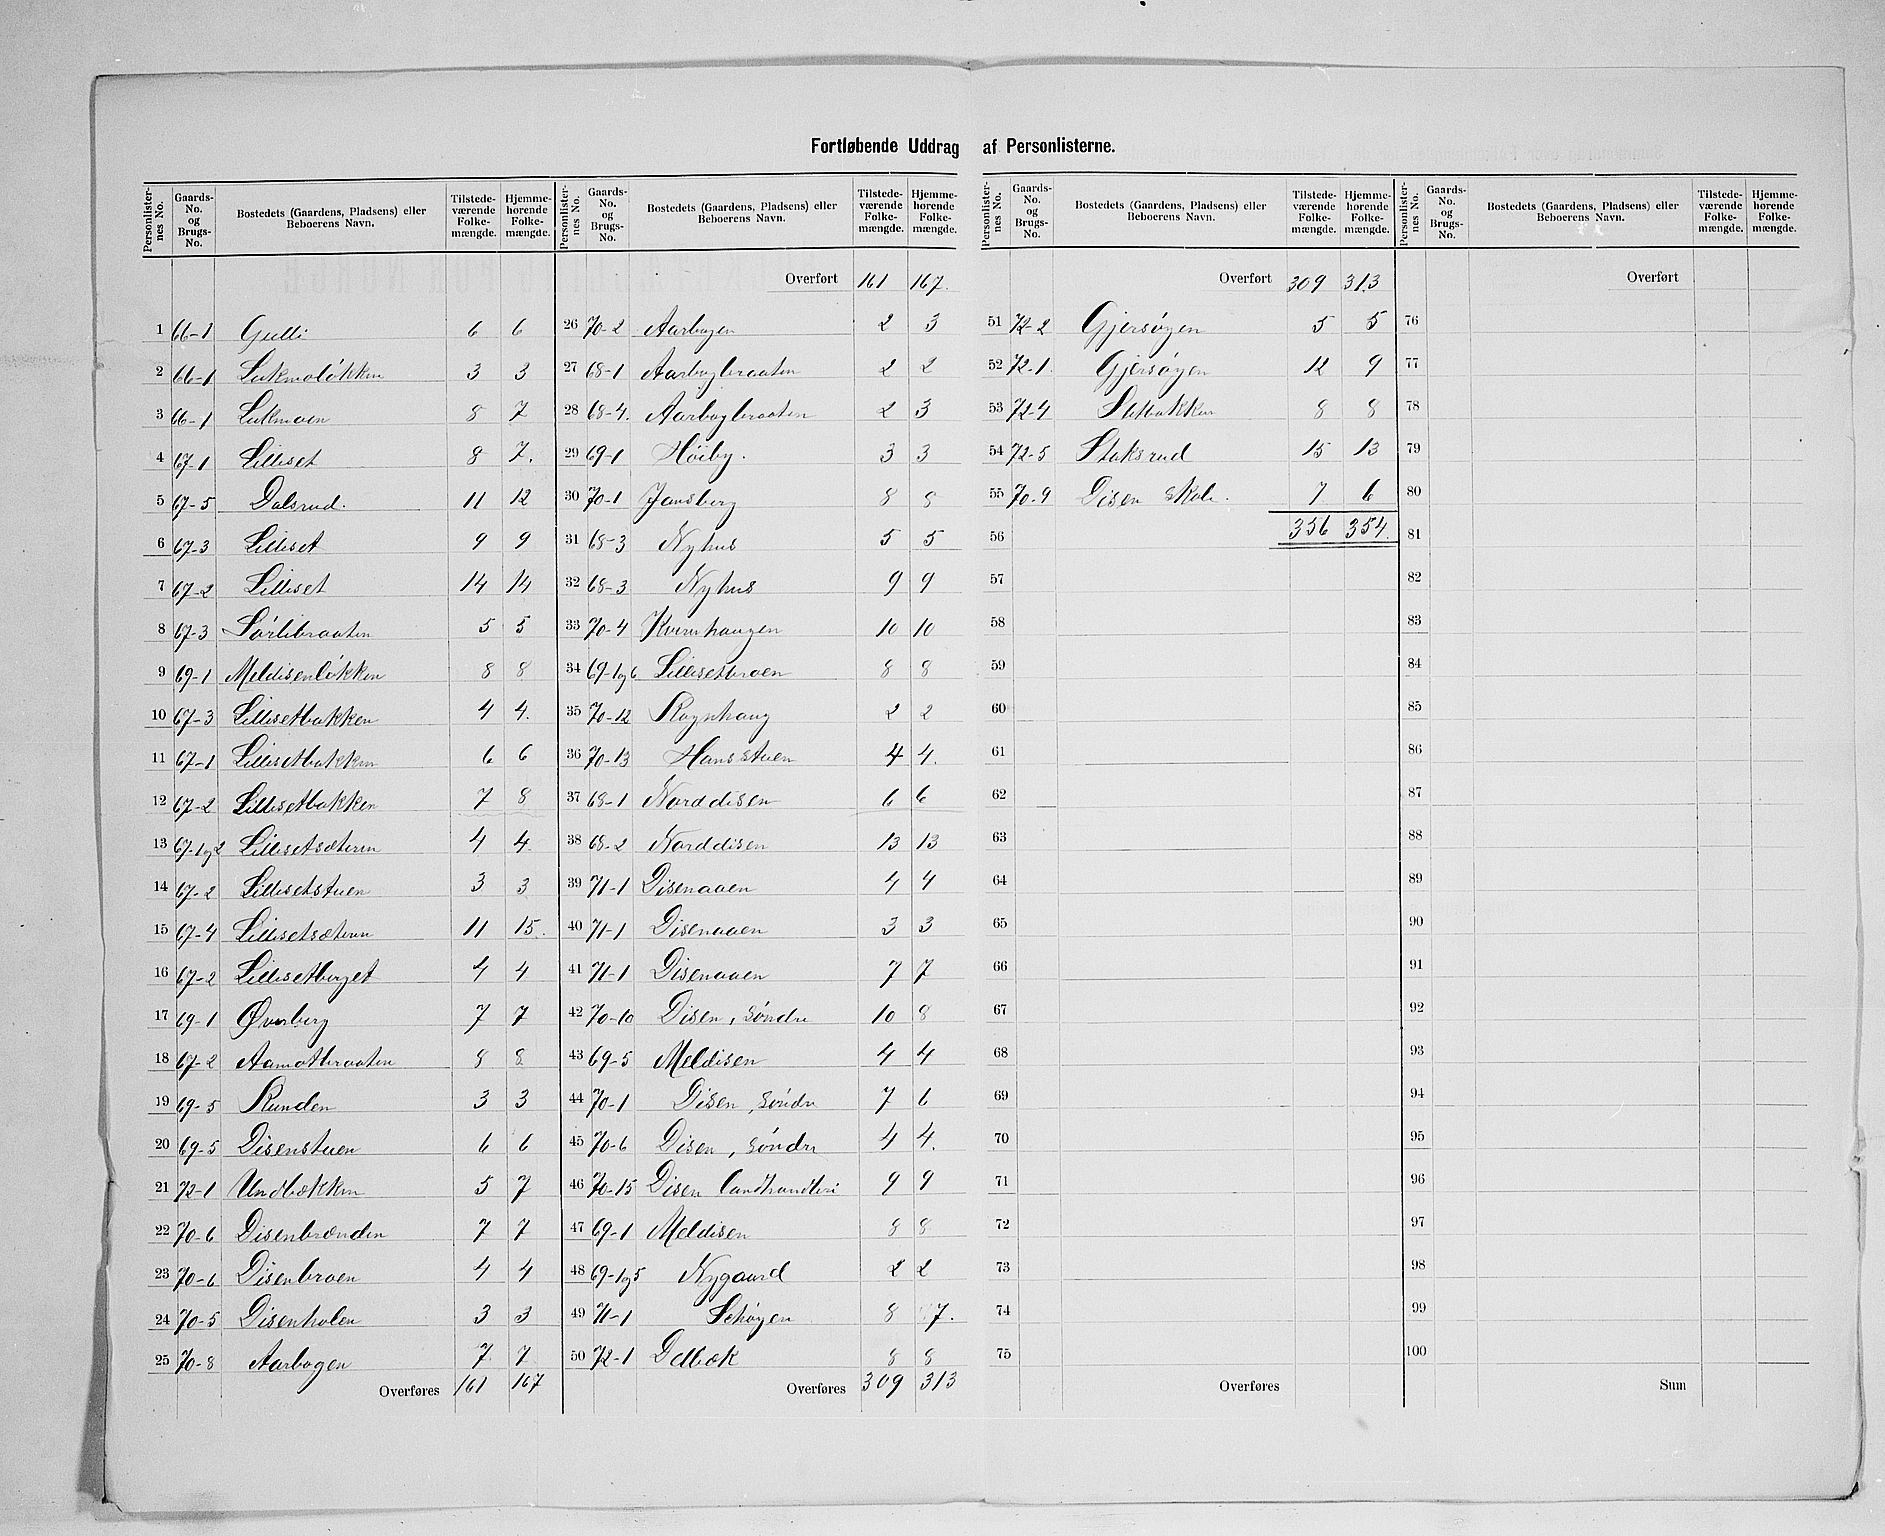 Fortløbende Uddrag af Personlisterne.
Personlister-nes No. Gaards-No. og Brugs-No. Bostedets (Gaardens, Pladsens) eller Beboerens Navn. Tilstede-værende Folke-mængde. Hjemme-hørende Folke-mængde.
1 66-1 Gulli 6 6
2 66-1 Lukmoløkken 3 3
3 66-1 Lukmoen 8 7
4 67-1 Lilliset 8 7.
5 67-5 Dalsrud. 11 12
6 67-3 Lilliset 9 9
7 67-2 Lilliset 14 14
8 67-3 Sørlibraaten 5 5
9 69-1 Meldisenløkken 8 8
10 67-3 Lillisetbakken 4 4.
11 67-1 Lillisetbakken 6 6
12 67-2 Lillisetbakken 7 8
13 67-1og2 Lillisetsæteren 4 4.
14 67-2 Lillisetstuen 3 3
15 67-4 Lillisetsæteren 11 15.
16 67-2 Lillisetberget 4 4
17 69-1 Øverberg 7 7
18 67-2 Aamotbraaten 8 8
19 69-5 Runden 3 3
20 69-5 Disenstuen 6 6
21 72-1 Undbækken 5 7
22 70-6 Disenbrænden 7 7
23 70-6 Disenbroen 4 4
24 70-5 Disenholen 3 3
25 70-8 Aarbogen 7 7
Overføres 161 167
Personlister-nes No. Gaards-No. og Brugs-No. Bostedets (Gaardens, Pladsens) eller Beboerens Navn. Tilstede-værende Folke-mængde. Hjemme-hørende Folke-mængde.
Overført 161 167.
26 70-2 Aarbogen 2 3
27 68-1 Aarbogbraaten 2 2
28 68-4. Aarbogbraaten 2 3
29 69-1 Høiby. 3 3
30 70-1 Jansberg 8 8
31 68-3 Nyhus 5 5
32 68-3 Nyhus 9 9
33 70-4 Kvernhaugen 10 10
34 69-1og6 Lillisetbroen 8 8
35 70-12 Rognhaug 2 2
36 70-13 Hansstuen 4 4.
37 68-1 Norddisen 6 6
38 68-2 Norddisen 13 13
39 71-1 Disenaaen 4 4
40 71-1 Disenaaen 3 3
41 71-1 Disenaaen 7 7
42 70-10 Disen, søndre 10 8
43 69-5 Meldisen 4 4
44 70-1 Disen, søndre 7 6
45 70-6 Disen, søndre 4 4.
46 70-15 Disen landhandleri 9 9
47 69-1 Meldisen 8 8
48 69-1og5 Nygaard 2 2
49 71-1 Sehøgen 8 7.
50 72-1 Delbæk 8 8
Overføres 309 313
Personlister-nes No. Gaards-No. og Brugs-No. Bostedets (Gaardens, Pladsens) eller Beboerens Navn. Tilstede-værende Folke-mængde. Hjemme-hørende Folke-mængde.
Overført 309 313
51 72-2 Gjersøyen 5 5
52 72-1. Gjersøyen 12 9
53 72-4 8 8
54 72-5 Staksrud 15 13
55 70-9 Disen skole. 7 6
56 356 354.
57
58
59
60
61
62
63
64
65
66
67
68
69
70
71
72
73
74
75
Overføres
Personlister-nes No. Gaards-No. og Brugs-No. Bostedets (Gaardens, Pladsens) eller Beboerens Navn. Tilstede-værende Folke-mængde. Hjemme-hørende Folke-mængde.
Overført
76
77
78
79
80
81
82
83
84
85
86
87
88
89
90
91
92
93
94
95
96
97
98
99
100
Sum